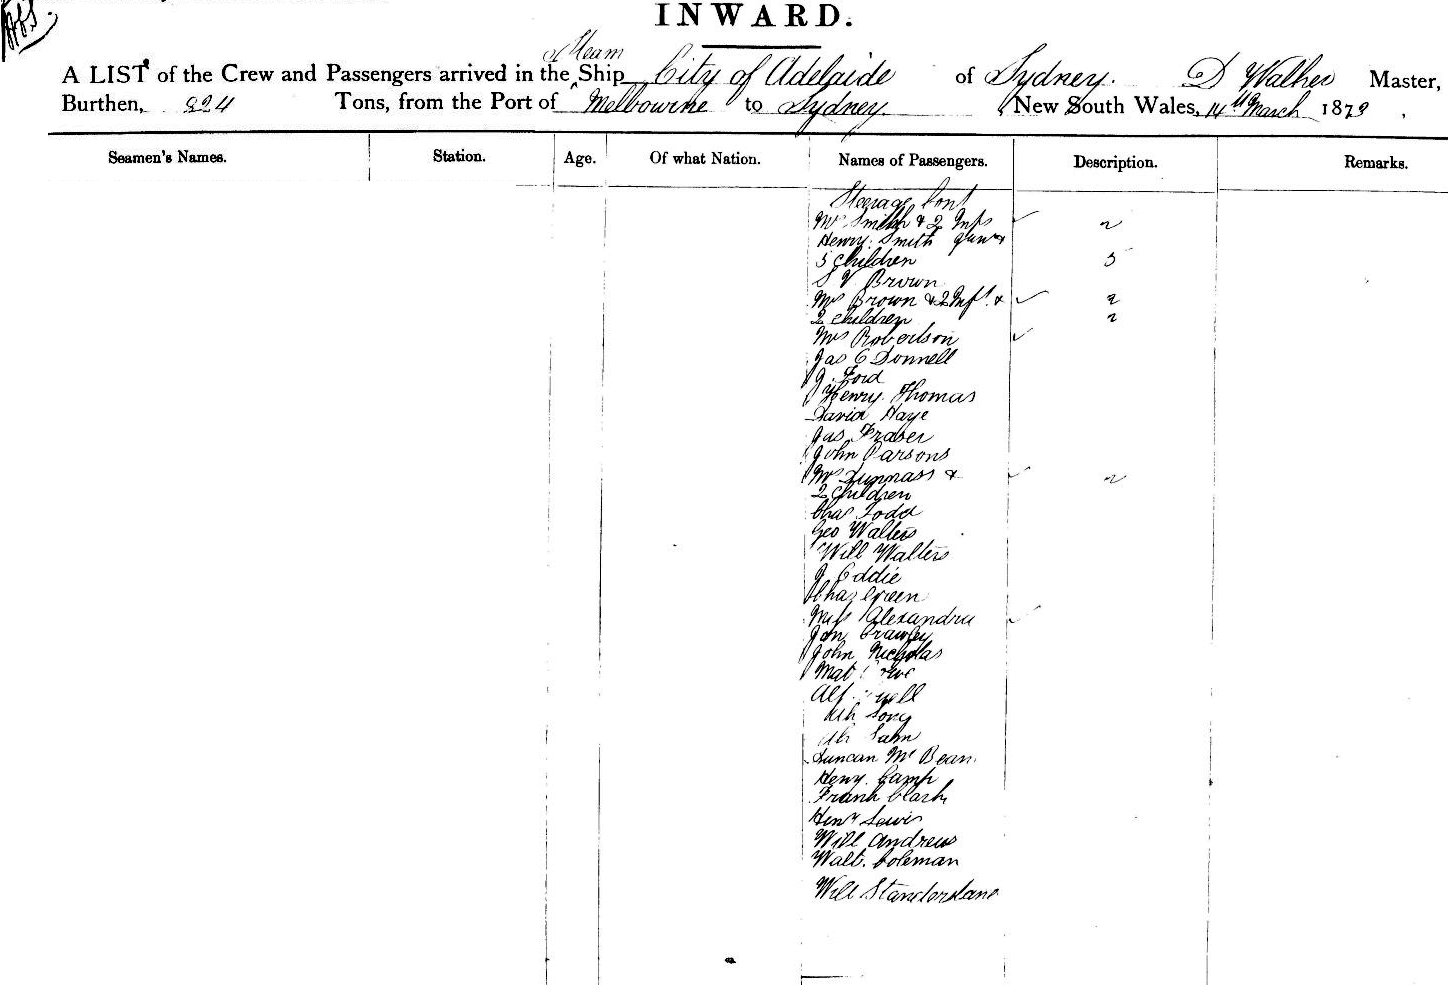 INWARD.
Steam
A LIST of the Crew and Passengers arrived in the Ship City of Adelaide of Sydney. D Walker Master,
Burthen, 824 Tons, from the Port of Melbourne to Sydney. New South Wales, 14th March 1873,
Seamen's Names. Station. Age. Of what Nation. Names of Passengers. Description. Remarks.
Steerage Cont
Mrs Smith & 2 Infs 2
Henry Smith &
5 Children 5
S V Brown
Mrs Brown & 2 Inft. & 2
2 Children 2
Mrs Robertson
Jas O Donnell
J. Ford
Henry Thomas
David Haye
Jas Fraser
John Parsons
Mrs & 2
2 Children
Chas Todd
Geo Walters
Will Walters
J Eddie
Chas Green
Miss Alexandra
Crawley
John Nicholas
Mat
Alf
Ah Song
Ah
Duncan Mc Bean.
Heny. Camp
Frank Clark
Heny Lewis
Will Andrews
Walt. Coleman
Will